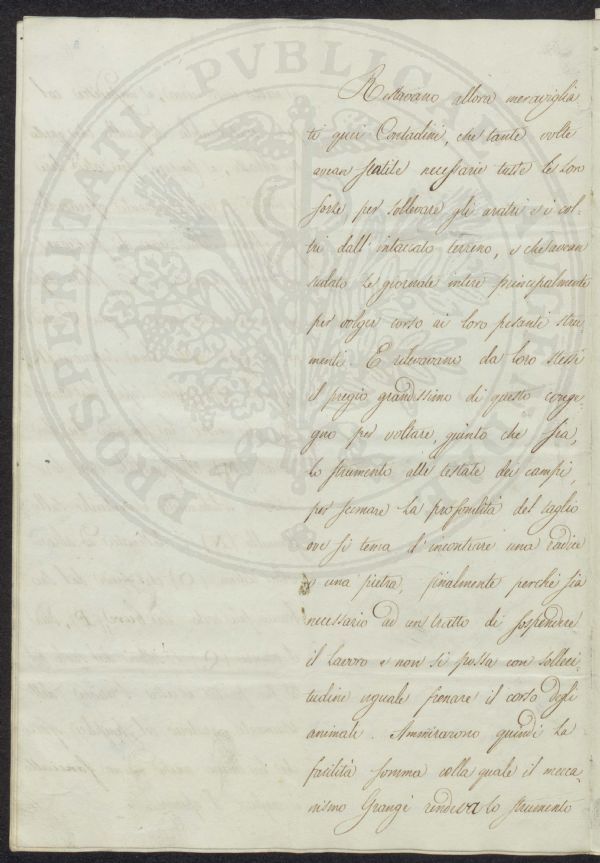 Restavano allora meraviglia
ti quei Contadini, che tante volte
avean sentite necessarie tutte le loro
forze per sollevare gli aratri e i col-
tri dall'intaccato terreno, e che avean
sudato le giornate intere principalmente
per volger corso ai loro pesanti stru
menti. E rilevavano da loro stessi
il pregio grandissimo di questo conge-
gno per voltare, giunto che sia,
lo strumento alle testate dei campi,
per scemare la profondità del taglio
ove si tema d'incontrare una radice
o una pietra, finalmente perché sia
necessario ad un tratto di sospendere
il lavoro e non si possa con solleci-
tudine uguale frenare il corso degli
animali. Ammirarono quindi la
facilità somma colla quale il mecca-
nismo Grangé rendeva lo strumento
PROSPERITATI PVBLICAE